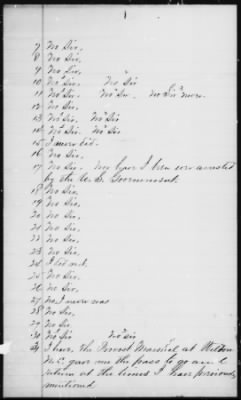 1
7 No Sir,
8 No Sir,
9 No Sir,
10 No Sir  No Sir
11 No Sir.  No Sir.  No Sir more.
12 No Sir.
13 No Sir.  No Sir
14 No Sir.  No Sir
15 I never did.
16 No Sir.
17 No Sir. I been arrested
by the U. S. Government.
18 No Sir.
19 No Sir,
20 No Sir,
21 No Sir,
22 No Sir,
23 No Sir.
24 I did not.
25 No Sir.
26 No Sir.
27 No I never was
28 No Sir.
29 No Sir
30 No Sir  No Sir
31 I have, the Provost Marshal at
N.C. gave me the pass to go and
return at the times I have previously
mentioned